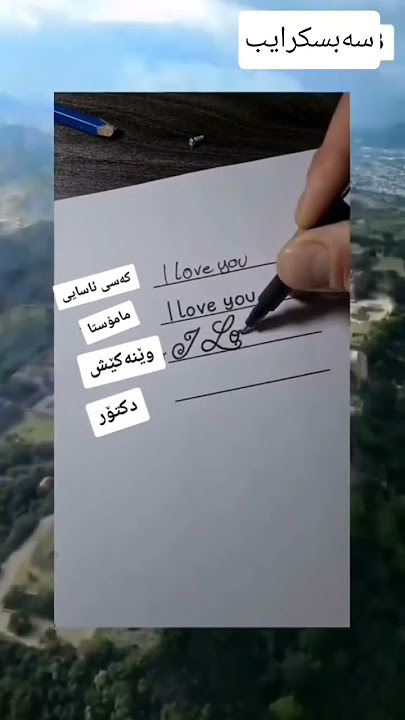 سەبسکرایب
کەسی ئاسایی
I love you
مامۆستا
I love you
وێنەکێش
I Lo
دکتۆر